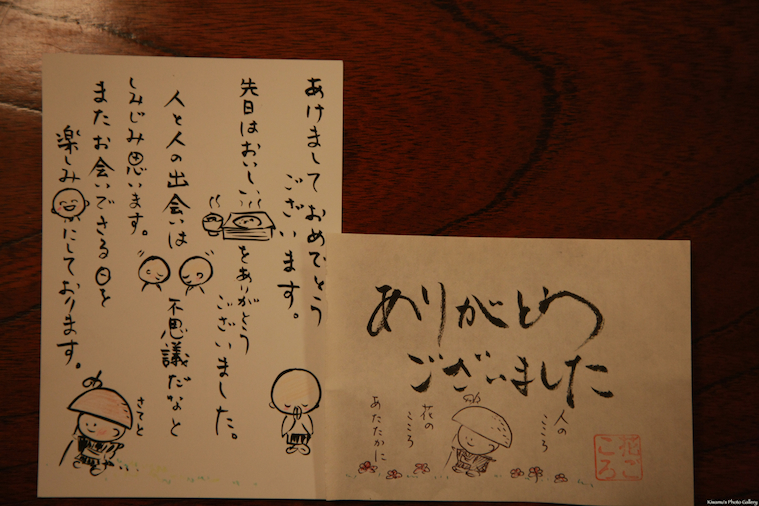 あけまして おめでとう
ございます。
先日はおいしい
をありがとう
ございました。
人と人の出会いは
不思議だなと
しみじみ思います。
またお会いできる日を
楽しみにしております。
さとと
ありがとう
ございました
人の
こころ
花の
こころ
あたたかに
花ご
ころ
Kinomo's Photo Gallery